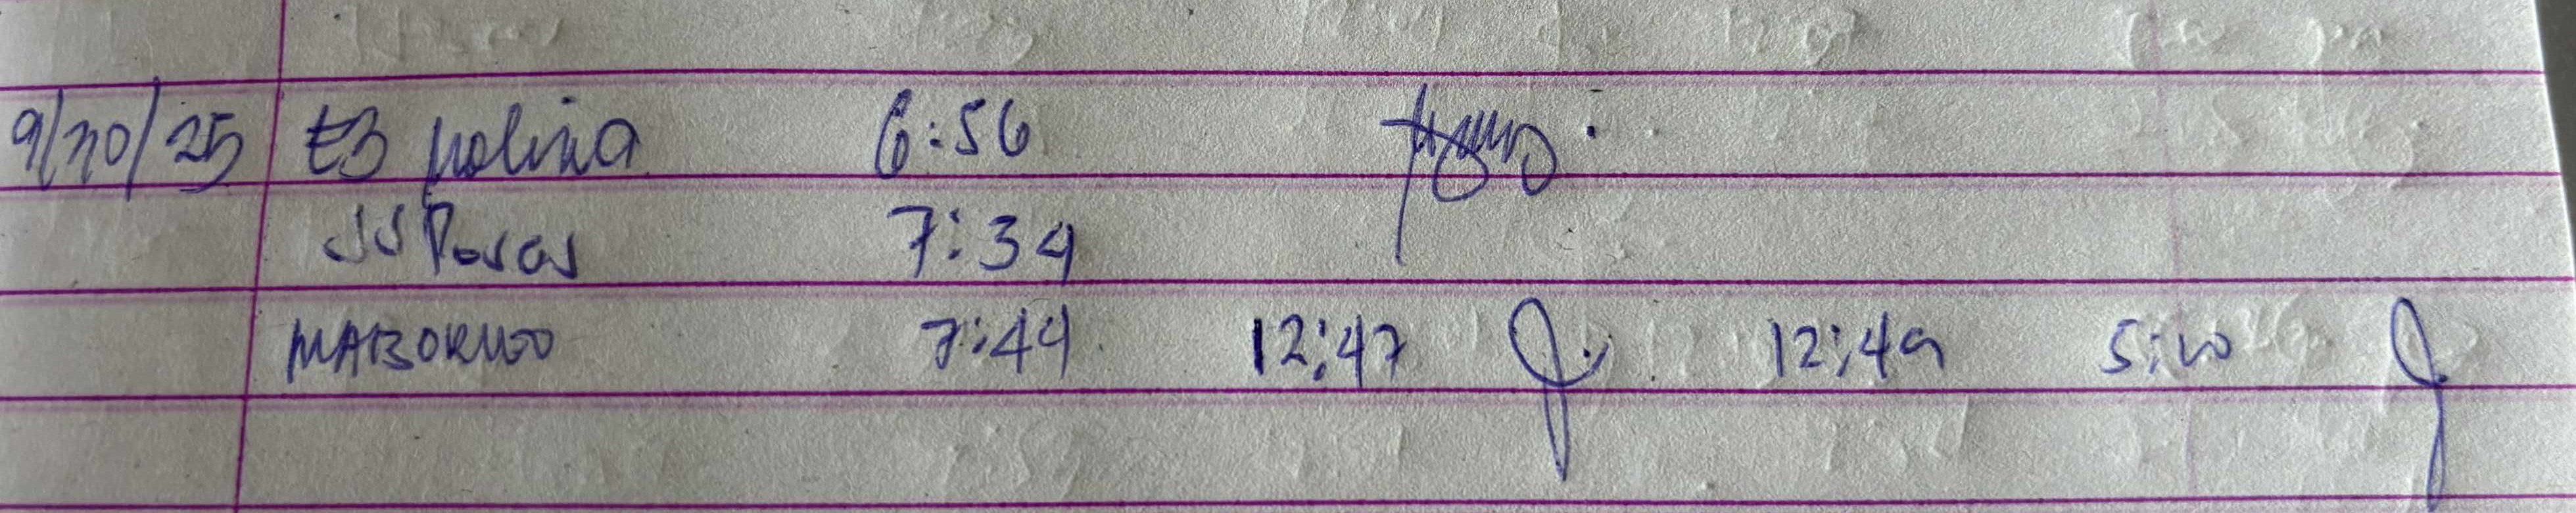 9/30/25 EB Molina 6:56
JS Posas 7:34
MABORNEO 7:49 12:47 12:49 5:10